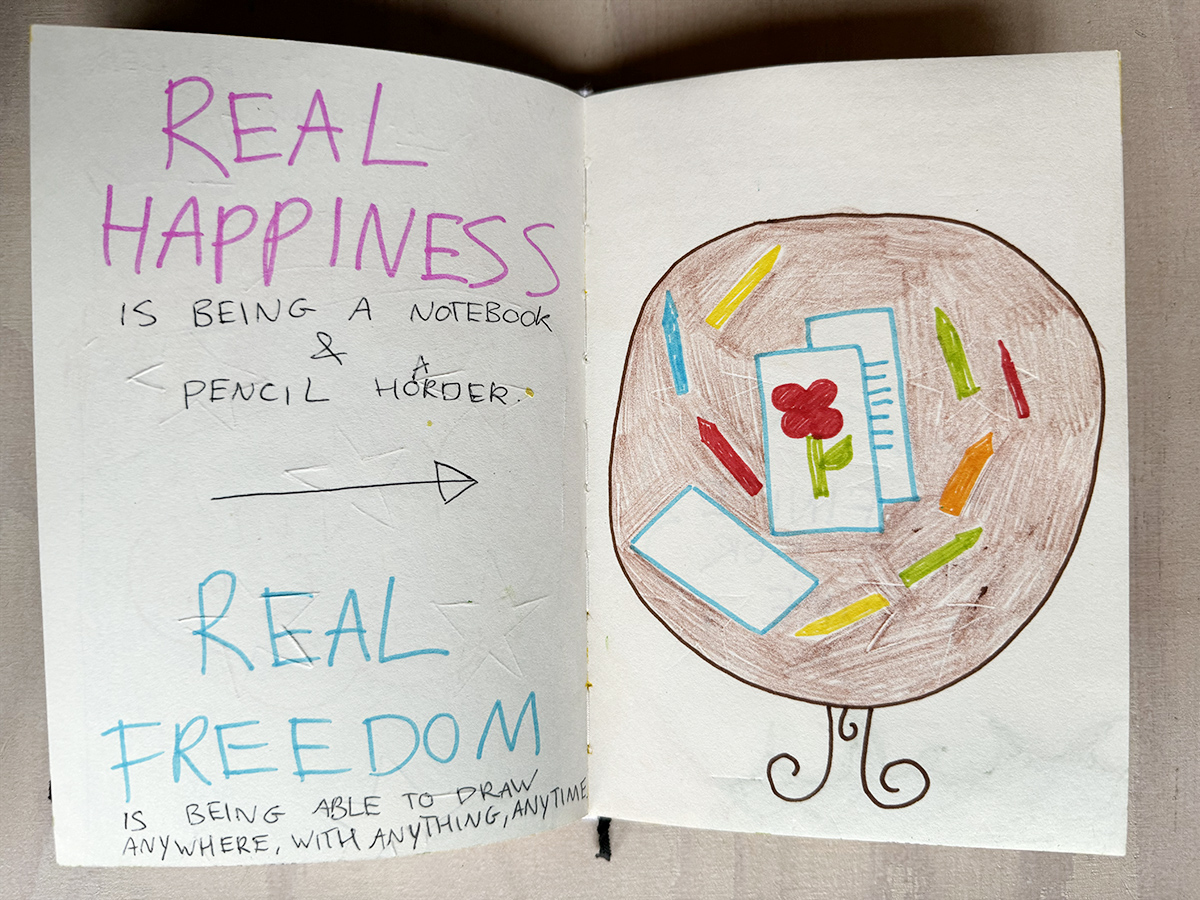 REAL
HAPPINESS
IS BEING A NOTEBOOK
&
PENCIL HOARDER.
REAL
FREEDOM
IS BEING ABLE TO DRAW
ANYWHERE, WITH ANYTHING, ANYTIME.